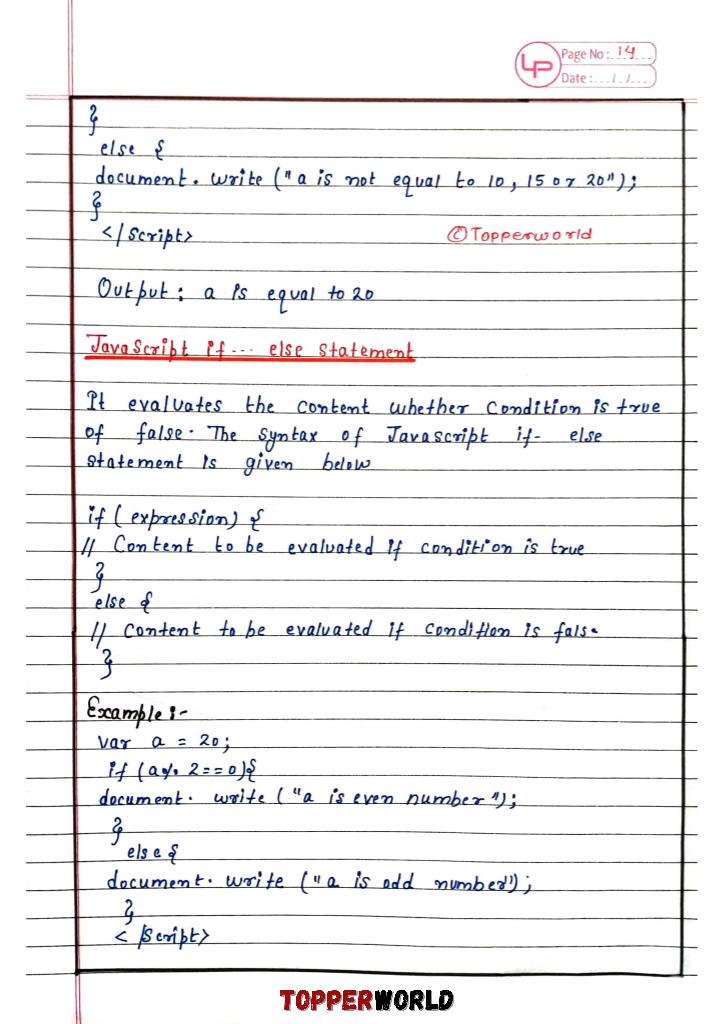 LP
Page No : 14
Date : / /
}
else {
document. write ("a is not equal to 10, 15 or 20");
}
</Script>
©Topperworld
Output : a is equal to 20
JavaScript if... else statement
It evaluates the content whether condition is true
of false. The syntax of Javascript if- else
statement is given below
if ( expression) {
// Content to be evaluated if condition is true
}
else {
// content to be evaluated if condition is fals.
}
Example :-
var a = 20;
if (a% 2==0){
document. write ("a is even number");
}
else {
document. write ("a is odd number");
}
< /Script>
TOPPERWORLD